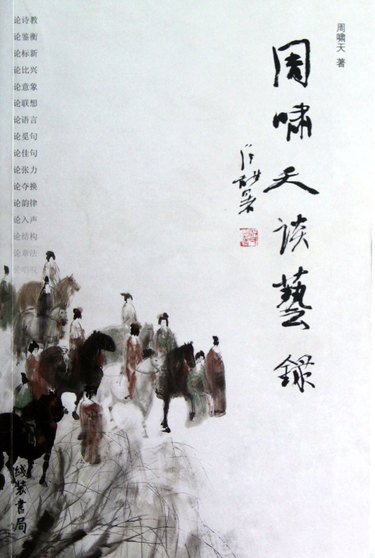 周啸天 著
周啸天谈艺录
论诗教
论鉴衡
论标新
论比兴
论意象
论联想
论语言
论觅句
论佳句
论张力
论夺换
论韵律
论入声
论结构
论章法
线装书局